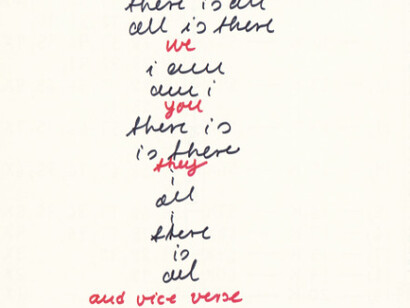 there is all
all is there
we
i am
am i
you
there is
is there
they
i
all
i
there
is
all
and vice verse